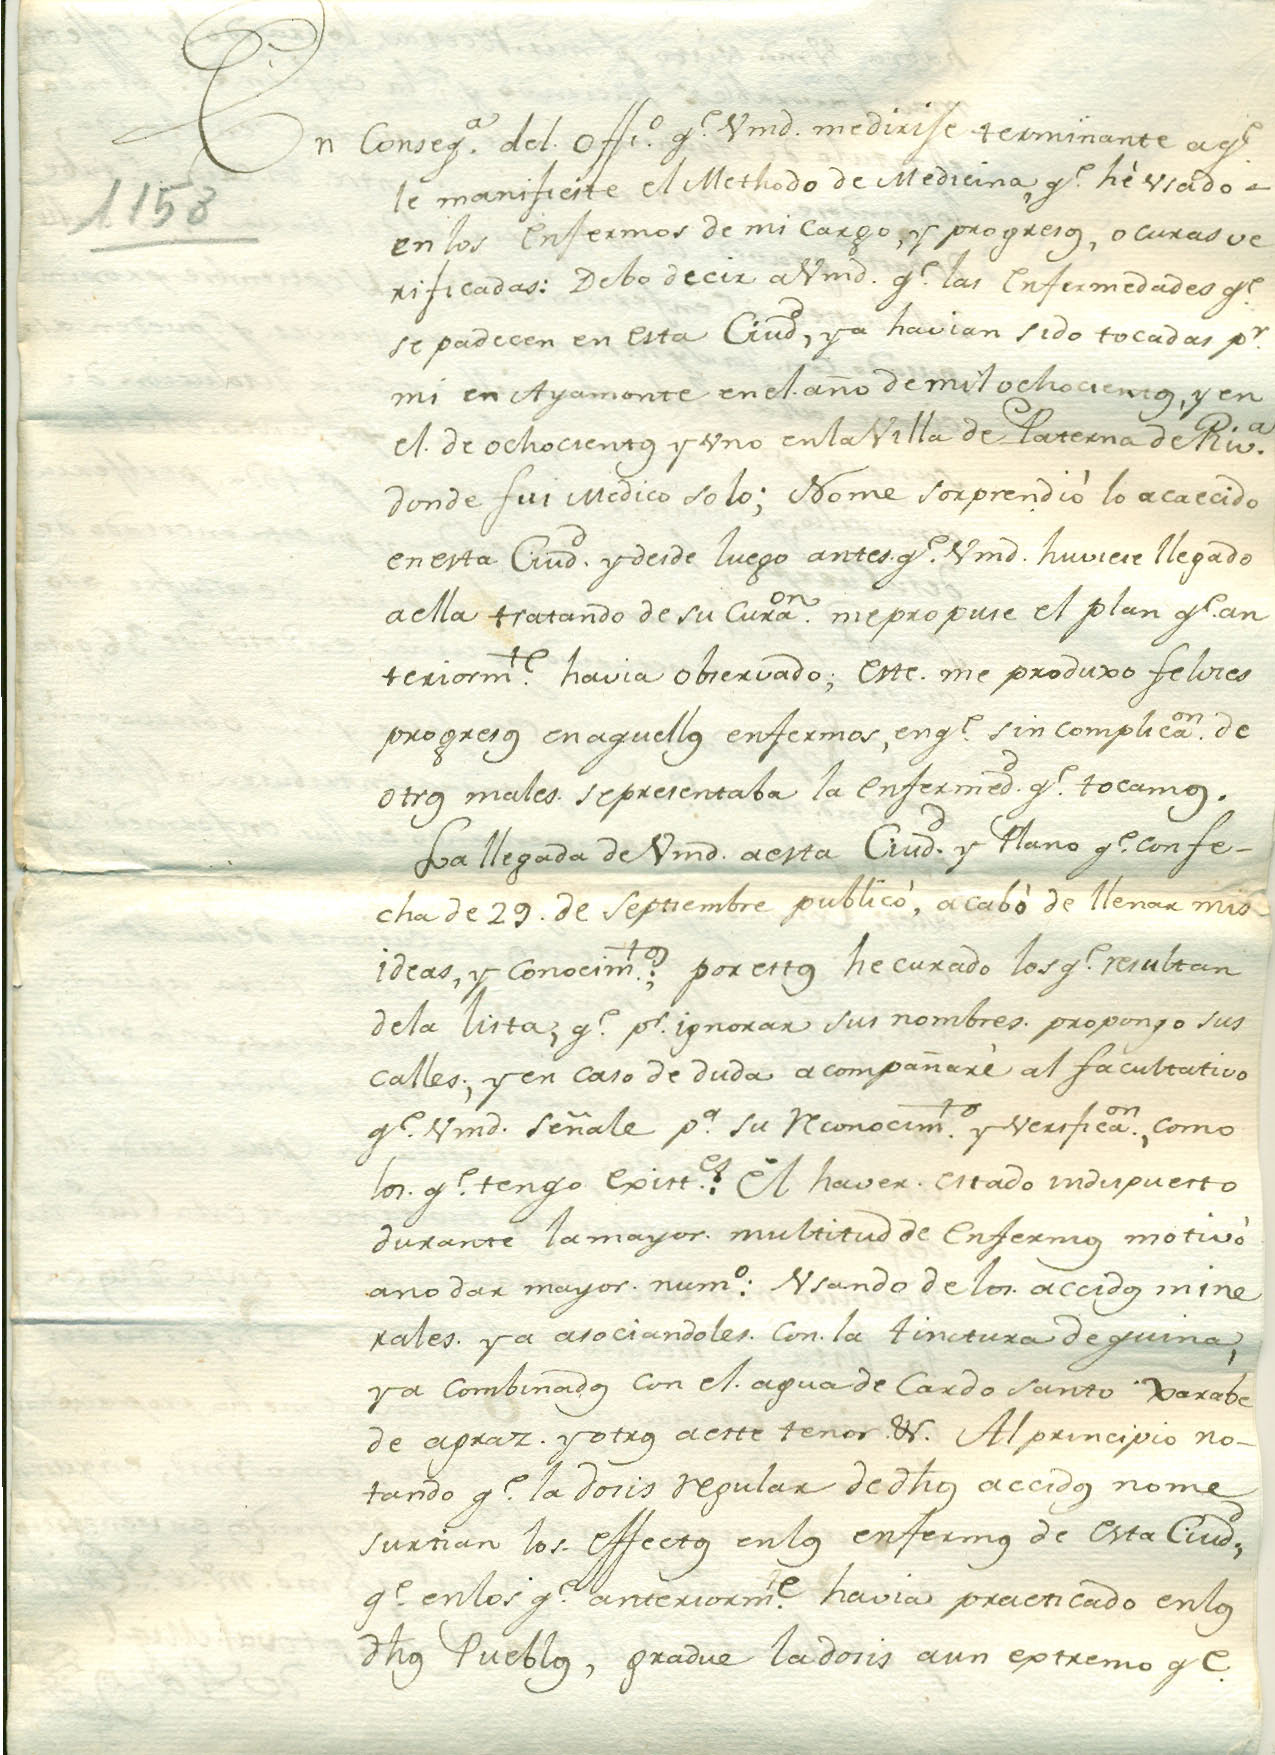 En Conseq.ª del. Offi.º q.e Vmd. medirije terminante aq.e
1158
le manifieste el Methodo de Medicina, q.e hè vsado
en los Enfermos de mi cargo, y progresos, o curas ve
rificadas: Debo decir a Vmd. q.e las Enfermedades q.e
se padecen en esta Ciud.d, ya havian sido tocadas p.r
mi en Ayamonte en el. año de mil ochocientos, y en
el. de ochocientos y vno en la Villa de Paterna de Riv.a
donde fui Medico solo; Nome sorprendiò lo acaecido
en esta Ciud.d y desde luego antes. q.e Vmd. huviese llegado
a ella tratando de su Cura.on me propuse el plan q.e an
teriorm.te havia observado; este. me produxo felices
progresos en aquellos enfermos, en q.e sin complica.on de
otros males. se presentaba la Enfermed.d q.e tocamos.
La llegada de Vmd. a esta Ciud.d y Plano q.e con fe-
cha de 29. de Septiembre publicó, acabò de llenar mis
ideas, y conocim.tos; por estos he curado los q.e resultan
dela lista, q.e p.r ignorar sus nombres. propongo sus
calles; y en caso de duda acompañarè al facultativo
q.e Vmd. señale p.a su reconocim.to y verifica.on, como
los. q.e tengo exist.es: El haver. estado indispuesto
durante la mayor. multitud de Enfermos motivò
a no dar mayor. num.o: Vsando de los. accidos mine
rales. ya asociandoles. con. la tinctura de quina,
ya combinados con el. agua de Cardo santo xarabe
de agraz. y otros a este tenor &. Al principio no-
tando q.e la dosis regular de dhos accidos no me
surtian los. effectos en los enfermos de esta Ciud.d,
q.e en los q.e anteriorm.te havia practicado en los
dhos Pueblos, gradue la dosis a un extremo q.e